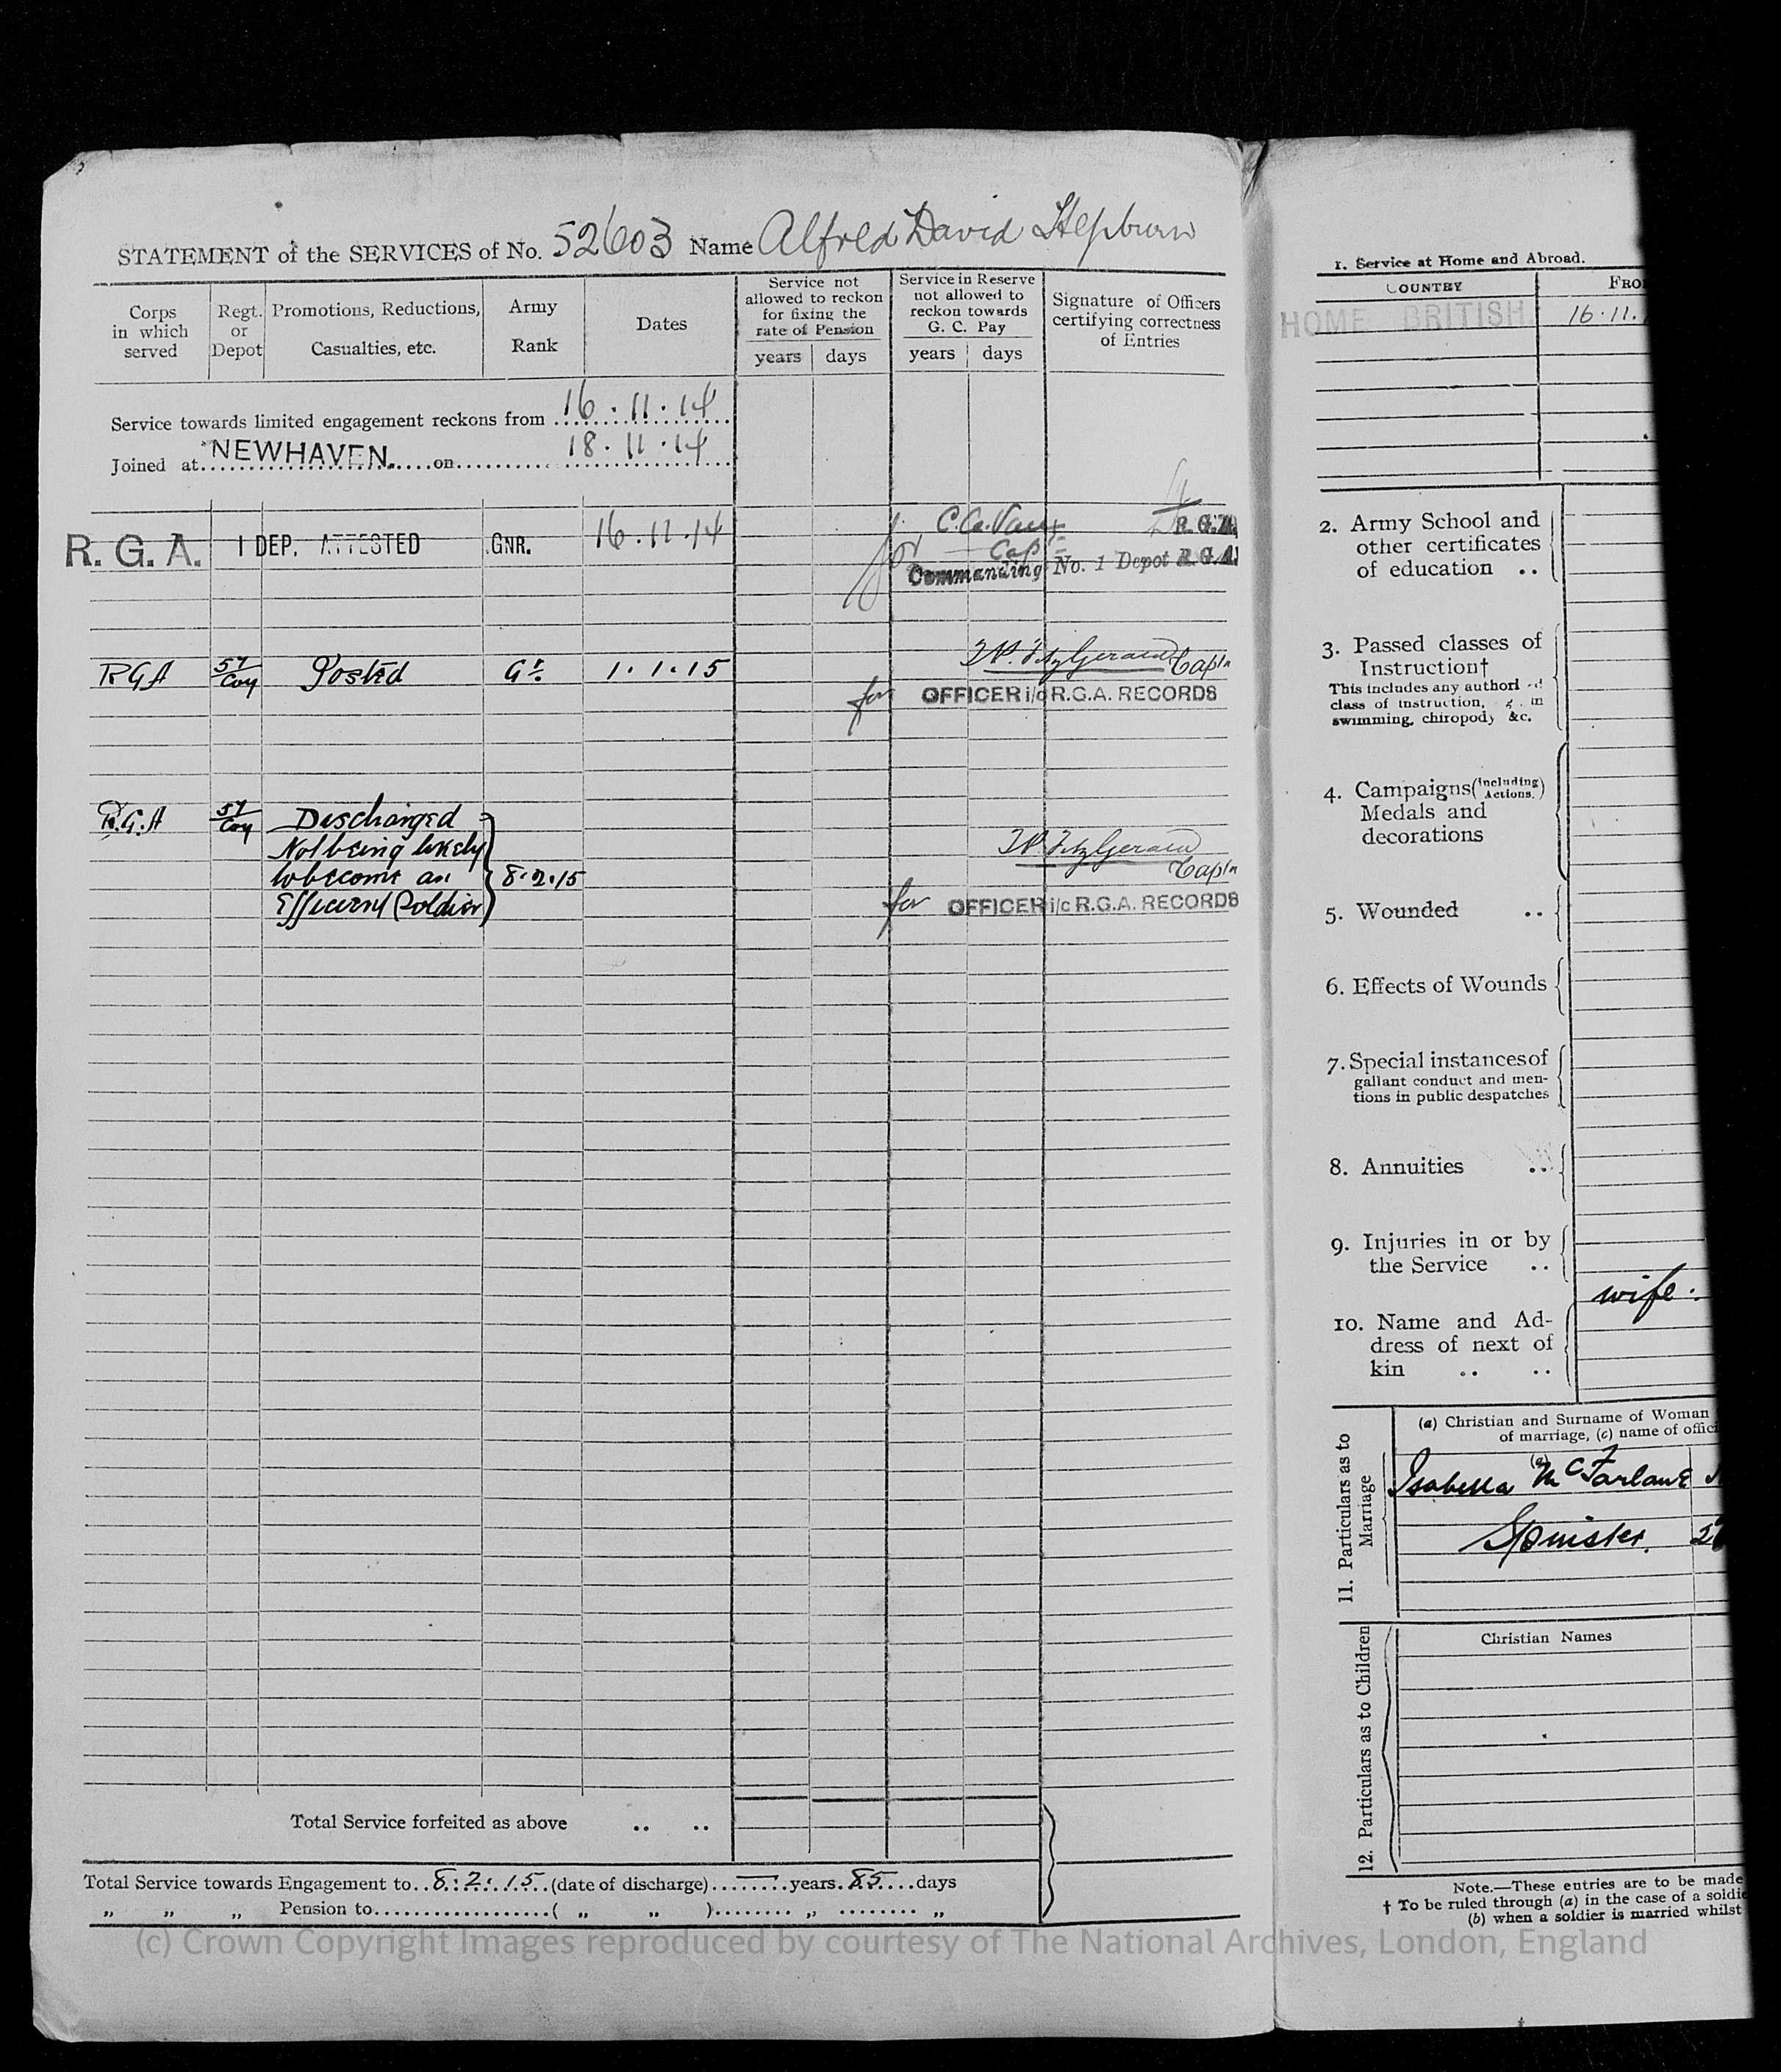 STATEMENT of the SERVICES of No. 52603 Name Alfred David Hepburn
Corps in which served
Regt. or Depot
Promotions, Reductions, Casualties, etc.
Army Rank
Dates
Service not allowed to reckon for fixing the rate of Pension
years days
Service in Reserve not allowed to reckon towards G. C. Pay
years days
Signature of Officers certifying correctness of Entries
Service towards limited engagement reckons from 16.11.14
Joined at NEWHAVEN. on 18.11.14
R. G. A. 1 DEP. ATTESTED GNR. 16.11.14
for
Capt
Commanding No. 1 Depot R.G.A.
RGA 57/Coy Posted Gr. 1.1.15
FitzGerald Captn
for OFFICER i/c R.G.A. RECORDS
R.G.A 57/Coy Discharged
Not being likely
to become an 8.2.15
Efficient Soldier
FitzGerald
Captn
for OFFICER i/c R.G.A. RECORDS
Total Service forfeited as above .. ..
Total Service towards Engagement to 8.2.15 (date of discharge) — years 85 days
„ „ „ Pension to ( „ „ ) „ „
1. Service at Home and Abroad.
COUNTRY
HOME BRITISH 16.11.
2. Army School and
other certificates
of education ..
3. Passed classes of
Instruction†
This includes any
class of instruction,
swimming, chiropody &c.
4. Campaigns (including Actions.)
Medals and
decorations
5. Wounded ..
6. Effects of Wounds
7. Special instances of
gallant conduct and men-
tions in public despatches
8. Annuities ..
9. Injuries in or by
the Service ..
wife.
10. Name and Ad-
dress of next of
kin .. ..
11. Particulars as to Marriage
(a) Christian and Surname of Woman
of marriage, (c) name of
(a)
Isabella McFarlane
Spinster.
12. Particulars as to Children
Christian Names
Note.—These entries are to be made
† To be ruled through (a) in the case of a
(b) when a soldier is married whilst
(c) Crown Copyright Images reproduced by courtesy of The National Archives, London, England